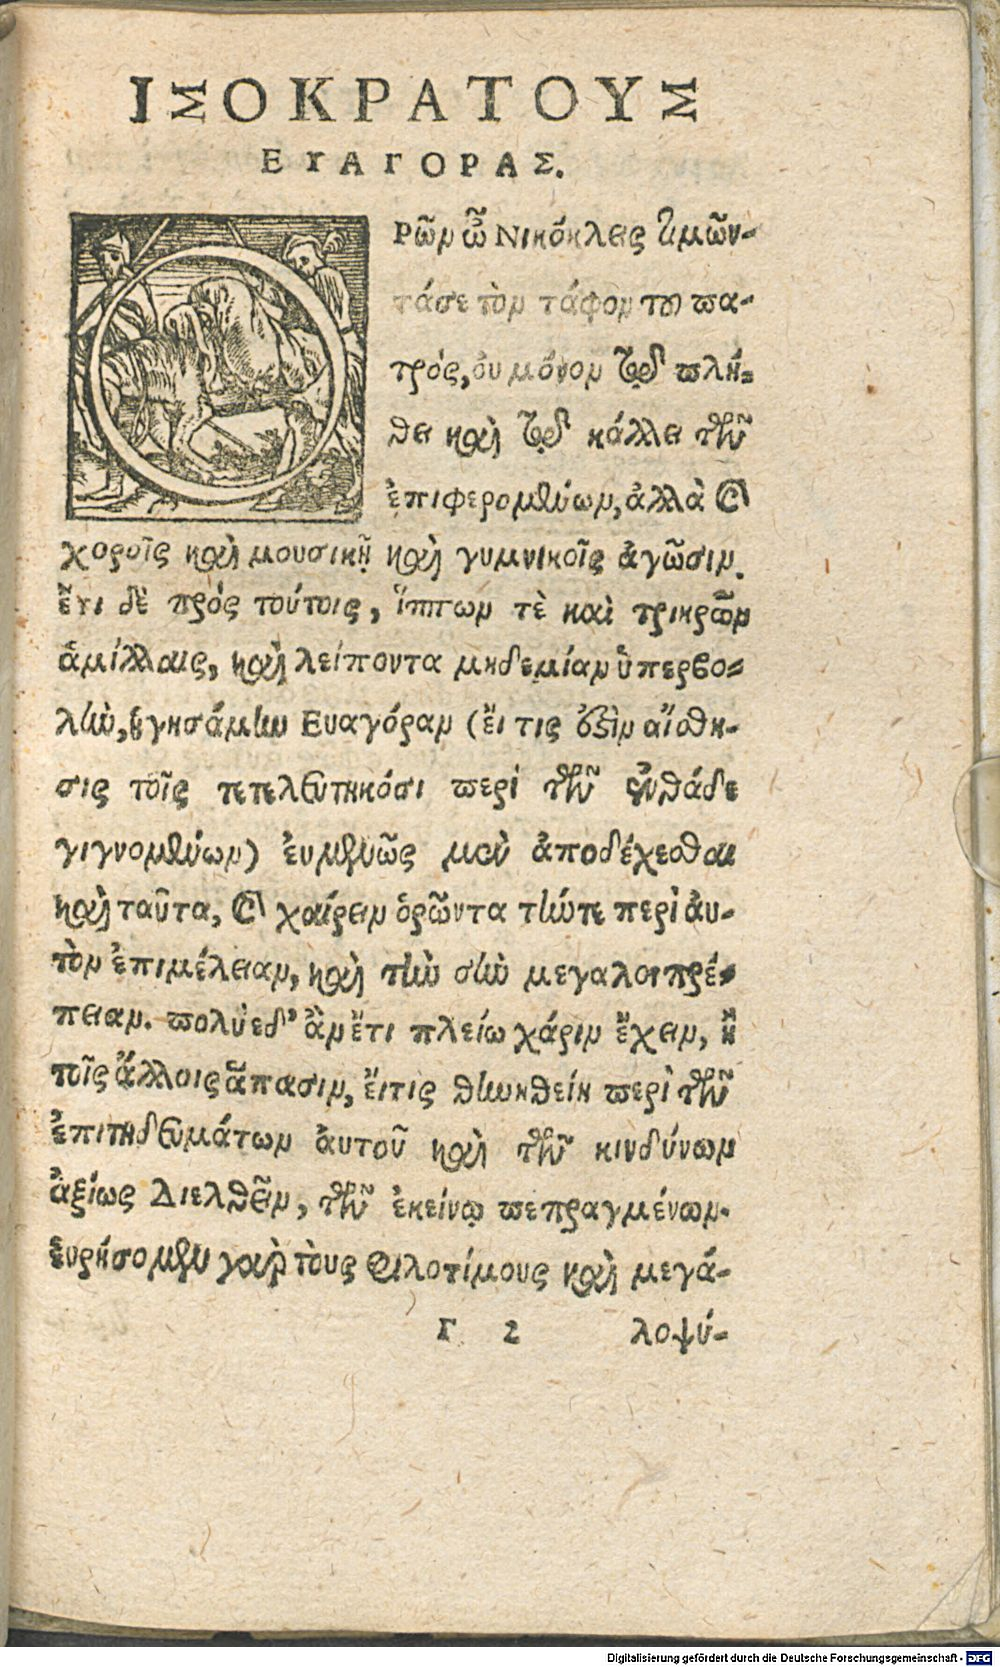 ΙΣΟΚΡΑΤΟΥΣ
ΕΥΑΓΟΡΑΣ.
ΟΡῶν ὦ Νικόκλεις τιμῶν-
τά σε τὸν τάφον τοῦ πα-
τρός, ου μόνον τῷ πλή-
θει καὶ τῷ κάλλει τῶν
ἐπιφερομένων, ἀλλὰ καὶ
χοροῖς καὶ μουσικῇ καὶ γυμνικοῖς ἀγῶσιν.
ἔτι δὲ πρός τούτοις, ἵππων τὲ καὶ τριηρῶν
ἁμίλλαις, καὶ λείποντα μηδεμίαν ὑπερβο-
λὴν, ἡγησάμην Ευαγόραν (ἔι τις ἐστὶν αἴσθη-
σις τοῖς τετελευτηκόσι περὶ τῶν ἐνθάδε
γιγνομένων) ἐυμενῶς μὲν ἀποδέχεσθαι
καὶ ταῦτα, καὶ χαίρειν ὁρῶντα τήντε περὶ ἀυ-
τὸν ἐπιμέλειαν, καὶ τὴν σὴν μεγαλοπρέ-
πειαν. πολὺ δ' ἂν ἔτι πλείω χάριν ἔχειν, ἢ
τοῖς ἄλλοις ἅπασιν, ἔιτις δυνηθείη περὶ τῶν
ἐπιτηδευμάτων ἀυτοῦ καὶ τῶν κινδύνων
ἀξίως Διελθεῖν, τῶν ἐκείνῳ πεπραγμένων.
ἑυρήσομεν γαὰρ τοὺς φιλοτίμους καὶ μεγά-
Γ 2 λοψύ-
Digitalisierung gefördert durch die Deutsche Forschungsgemeinschaft - DFG